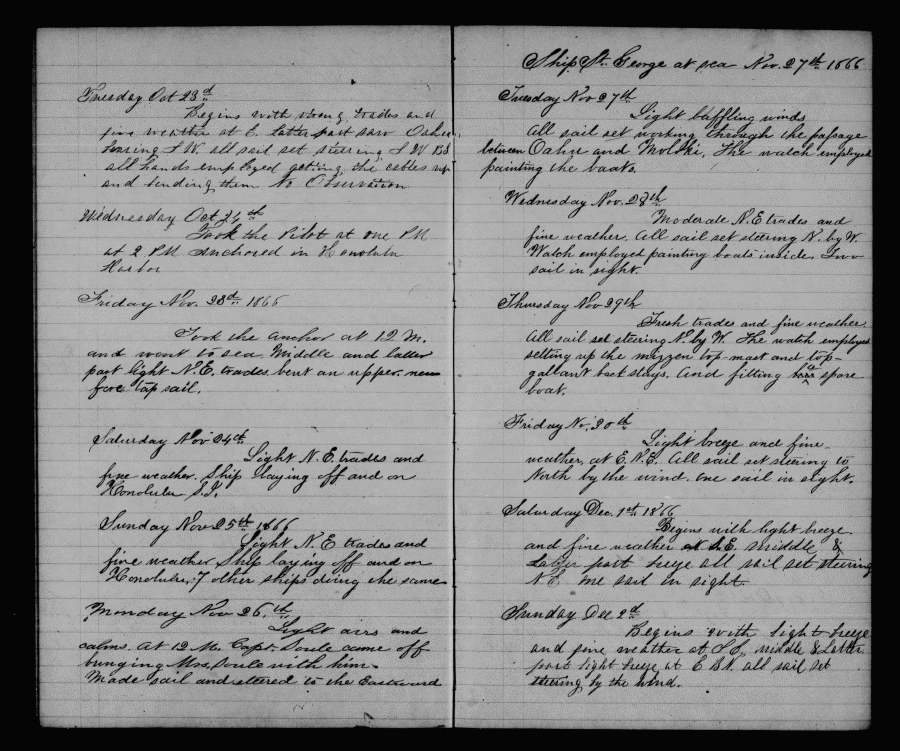 Tuesday Oct 23d
Begins with strong trades and
fine weather at E. Latter part saw Oahu
bearing S W all sail set steering S W
all hands employed getting the cables up
and bending them No Observation
Wednesday Oct 24th
Took the Pilot at one PM
at 2 PM anchored in Honolulu
Harbor
Friday Nov. 23d 1866
Took the anchor at 12 M.
and went to sea Middle and latter
part light N.E. trades bent an upper new
fore top sail.
Saturday Nov 24th
Light N.E. trades and
fine weather. Ship laying off and on
Honolulu S.I.
Sunday Nov 25th 1866
Light N.E trades and
fine weather Ship laying off and on
Honolulu, 7 other ships doing the same
Monday Nov 26.th
Light airs and
calms. At 12 M. Capt. Soule came off
bringing Mrs. Soule with him.
Made sail and steered to the Eastward
Ship St. George at sea Nov. 27th 1866
Tuesday Nov 27th
Light baffling winds
All sail set working through the passage
between Oahu and Moloki, The watch employed
painting the boats.
Wednesday Nov. 28th
Moderate N.E trades and
fine weather. All sail set steering N. by W.
Watch employed painting boats inside. Two
sail in sight.
Thursday Nov 29th
Fresh trades and fine weather.
All sail set steering N. by W. The watch employed
setting up the mizzen top-mast and top-
gallant back stays. And fitting a spare
boat.
Friday No. 30th
Light breeze and fine
weather, at E.N.E. All sail set steering to
North by the wind. One sail in sight.
Saturday Dec. 1st. 1866
Begins with light breeze
and fine weather at S.E. middle &
Latter part breeze all sail set steering
N.E. one sail in sight
Sunday Dec 2d
Begins with light breeze
and fine weather at S.E., middle & Latter
part light breeze at E all sail set
steering by the wind.